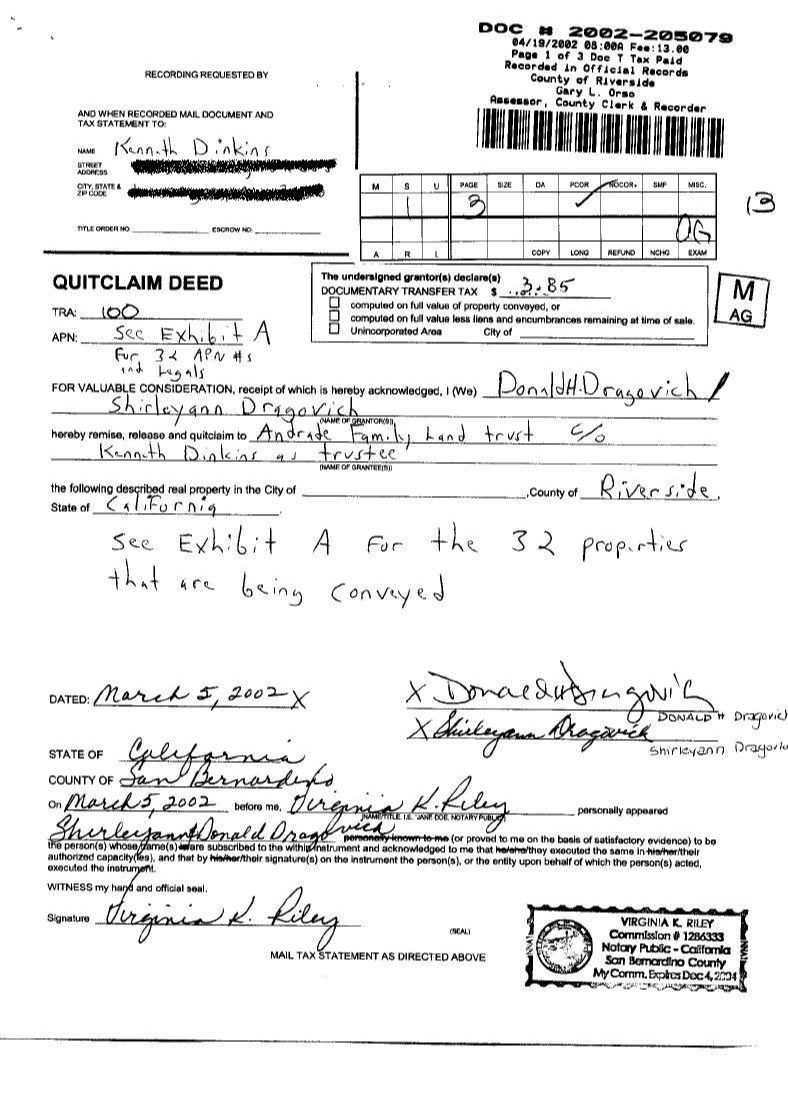 DOC # 2002-205079
04/19/2002 08:00A Fee:13.00
Page 1 of 3 Doc T Tax Paid
Recorded in Official Records
County of Riverside
Gary L. Orso
Assessor, County Clerk & Recorder
RECORDING REQUESTED BY
AND WHEN RECORDED MAIL DOCUMENT AND
TAX STATEMENT TO:
NAME Kenneth Dinkins
STREET
ADDRESS
CITY, STATE &
ZIP CODE
TITLE ORDER NO. ESCROW NO.
M S U PAGE SIZE DA PCOR NOCOR SMF MISC.
1 3 ✓
OG
A R L COPY LONG REFUND NCHG EXAM
13
QUITCLAIM DEED
TRA: 100
APN: See Exhibit A
For 32 APN #s
and Legals
The undersigned grantor(s) declare(s)
DOCUMENTARY TRANSFER TAX $ 3.85
computed on full value of property conveyed, or
computed on full value less liens and encumbrances remaining at time of sale.
Unincorporated Area City of
M
AG
FOR VALUABLE CONSIDERATION, receipt of which is hereby acknowledged, I (We) Donald H. Dragovich /
Shirleyann Dragovich
(NAME OF GRANTOR(S))
hereby remise, release and quitclaim to Andrade Family Land trust c/o
Kenneth Dinkins as trustee
(NAME OF GRANTEE(S))
the following described real property in the City of ,County of Riverside,
State of California
See Exhibit A For the 32 properties
that are being conveyed
DATED: March 5, 2002 X
X Donald H Dragovich
DONALD H Dragovich
X Shirleyann Dragovich
Shirleyann Dragovich
STATE OF California
COUNTY OF San Bernardino
On March 5, 2002 before me, Virginia K. Riley personally appeared
(NAME/TITLE, I.E. "JANE DOE, NOTARY PUBLIC")
Shirleyann & Donald Dragovich
personally known to me (or proved to me on the basis of satisfactory evidence) to be
the person(s) whose name(s) is/are subscribed to the within instrument and acknowledged to me that he/she/they executed the same in his/her/their
authorized capacity(ies), and that by his/her/their signature(s) on the instrument the person(s), or the entity upon behalf of which the person(s) acted,
executed the instrument.
WITNESS my hand and official seal.
Signature Virginia K. Riley
(SEAL)
MAIL TAX STATEMENT AS DIRECTED ABOVE
VIRGINIA K. RILEY
Commission # 1286333
Notary Public - California
San Bernardino County
My Comm. Expires Dec 4, 2004